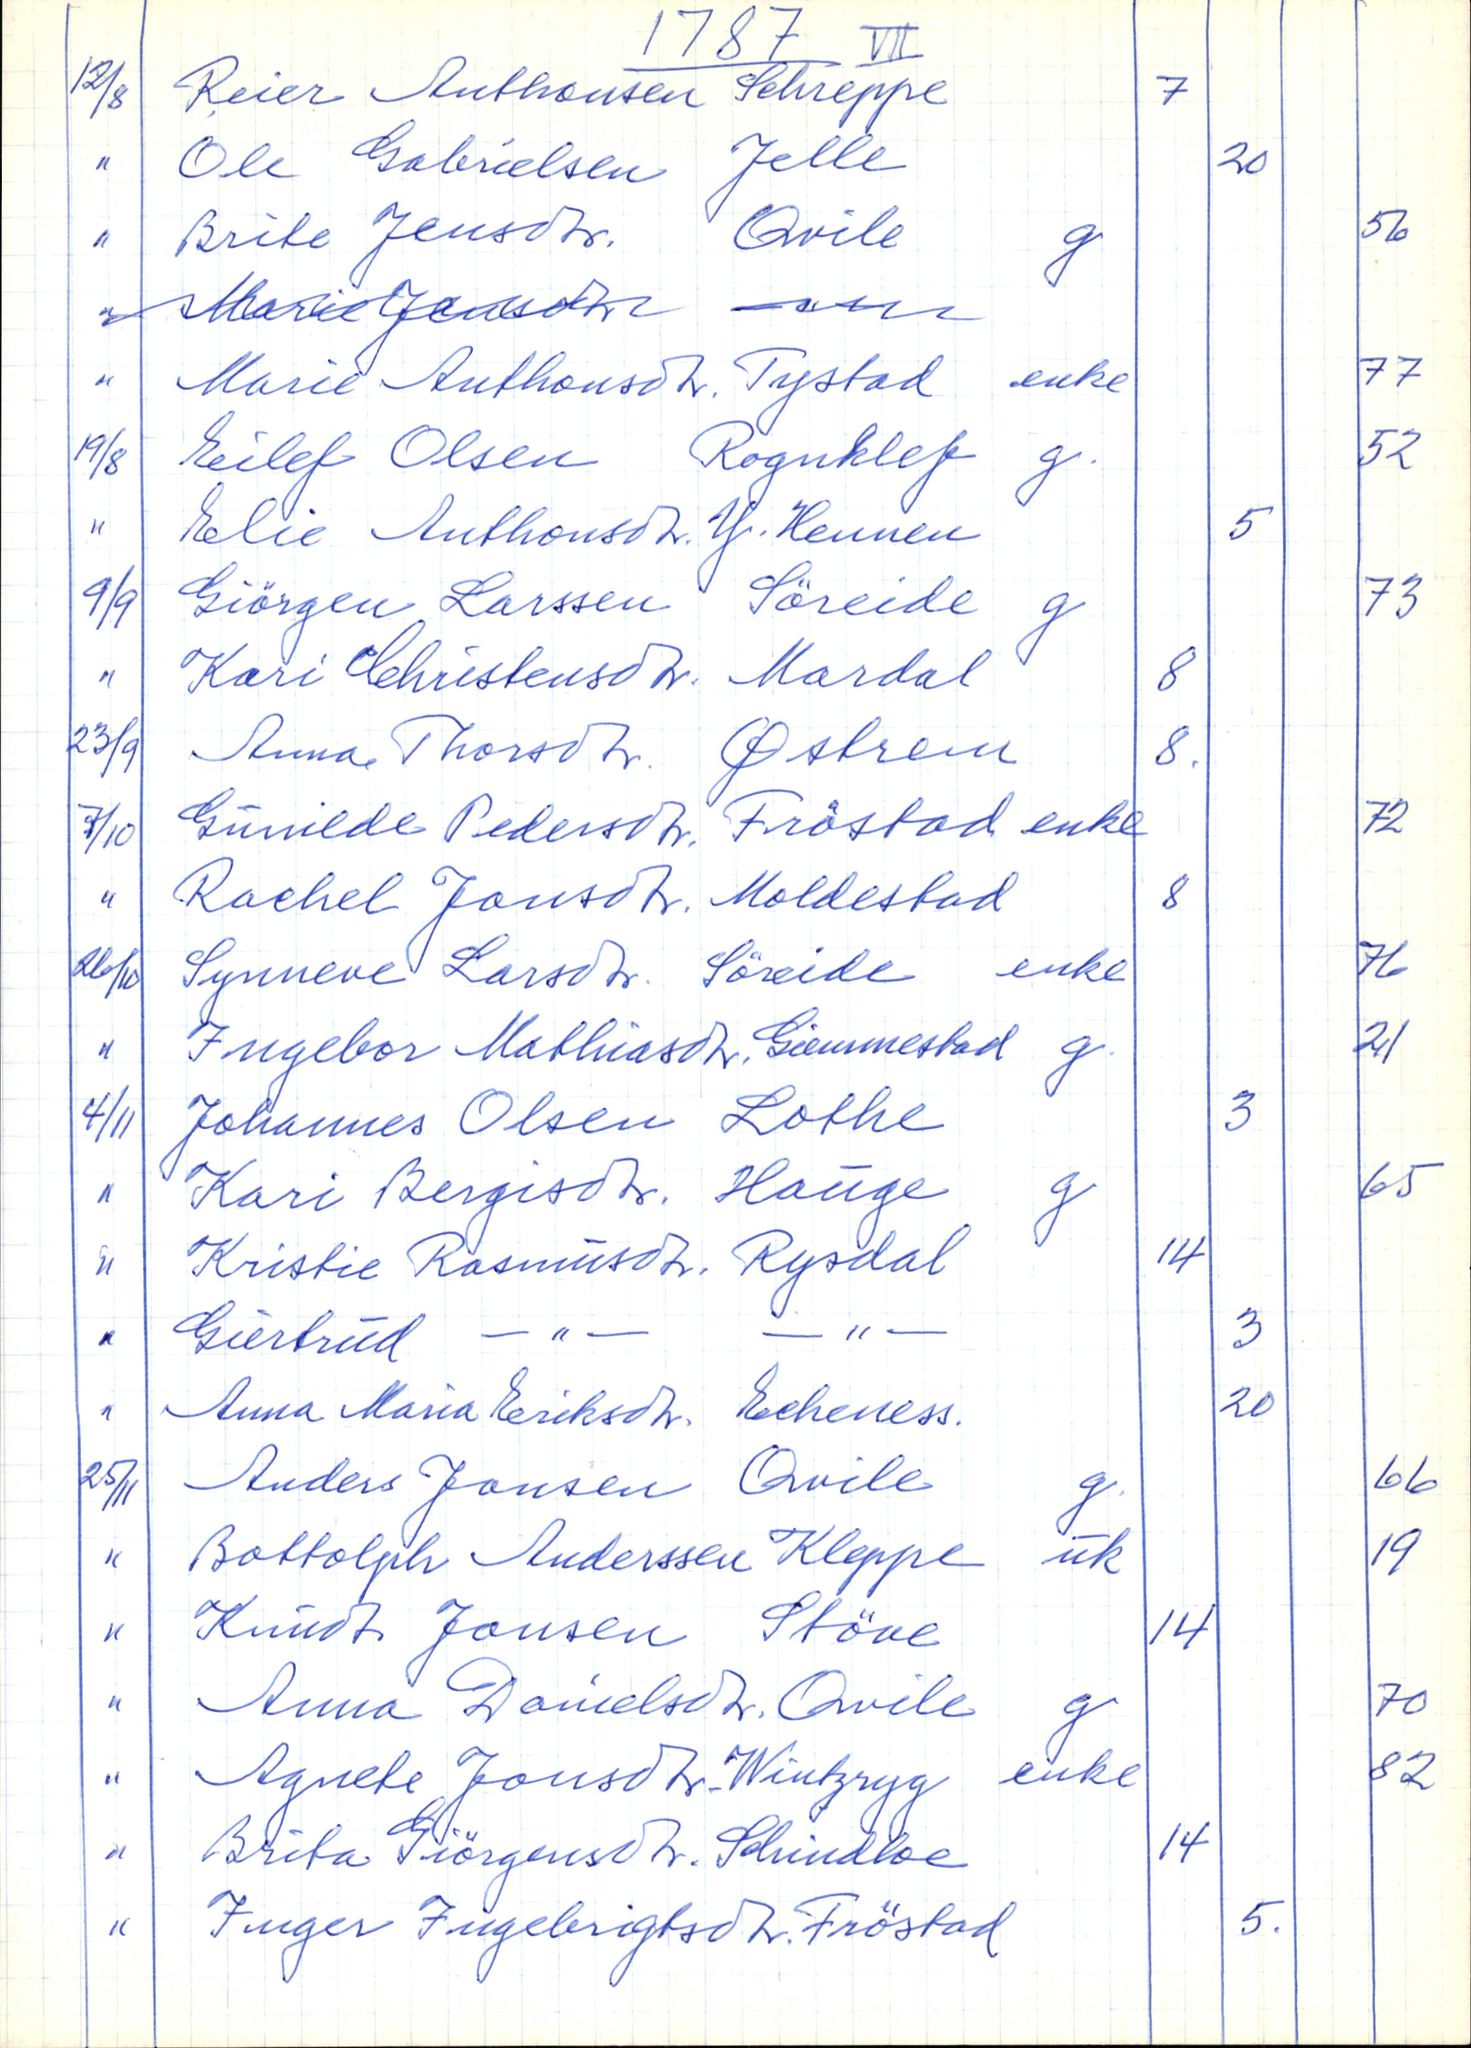 1787 VII
12/8 Reier Anthonsen Schreppe 7
" Ole Gabrielsen Jelle 20
" Brite Jensdtr. Qvile g 56
" Marie Jensdtr — " —
" Marie Anthonsdtr. Tystad enke 77
19/8 Eilef Olsen Rognklef g. 52
" Elie Anthonsdtr. Y. Hennen 5
9/9 Giörgen Larssen Söreide g 73
" Kari Christensdtr. Mardal 8
23/9 Anna Thorsdtr. Østrem 8.
7/10 Gunilde Pedersdtr. Fröstad enke 72
" Rachel Jonsdtr. Moldestad 8
26/10 Synneve Larsdtr. Söreide enke 76
" Ingebor Mathiasdtr. Giemmestad g. 21
4/11 Johannes Olsen Lothe 3
" Kari Bergisdtr. Hauge g 65
" Kristie Rasmusdtr. Rysdal 14
" Giertrud — " — — " — 3
" Anna Maria Eriksdtr. Echeness. 20
25/11 Anders Jonsen Qvile g. 66
" Bottolph Anderssen Kleppe uk 19
" Knudt Jonsen Stöve 14
" Anna Danielsdtr. Qvile g 70
" Agnete Jonsdtr. Wintzryg enke 82
" Brita Giörgensdtr. Schindloe 14
" Inger Ingebrigtsdtr. Fröstad 5.